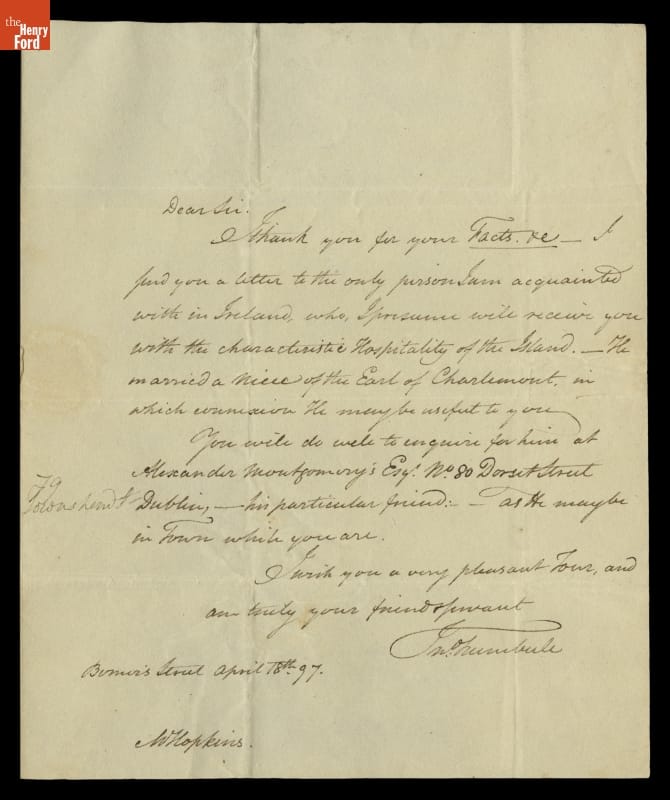 the
Henry
Ford
Dear Sir.
I thank you for your Facts. &c — I
send you a letter to the only person I am acquainted
with in Ireland, who, I presume will receive you
with the characteristic Hospitality of the Island. — He
married a Niece of the Earl of Charlemont, in
which connexion He may be useful to you
You will do well to enquire for him at
Alexander Montgomery's Esqr. No. 80 Dorset Street
79
Townshend St
Dublin, — his particular friend: — as He may be
in Town while you are.
I wish you a very pleasant Tour, and
am truly your friend & servant
Jno. Trumbull
Street April 18th. 97.
Mr Hopkins.